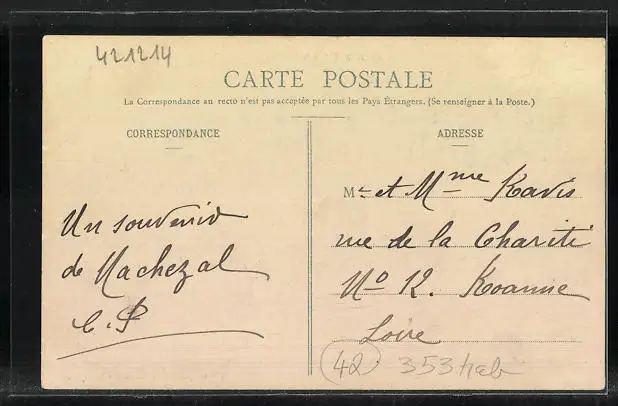 421214
CARTE POSTALE
La Correspondance au recto n'est pas acceptée par tous les Pays Étrangers. (Se renseigner à la Poste.)
CORRESPONDANCE
Un souvenir
de Machezal
C. P
ADRESSE
Mr et Mme Ravis
rue de la Charité
No 12. Roanne
Loire
42 353 hab